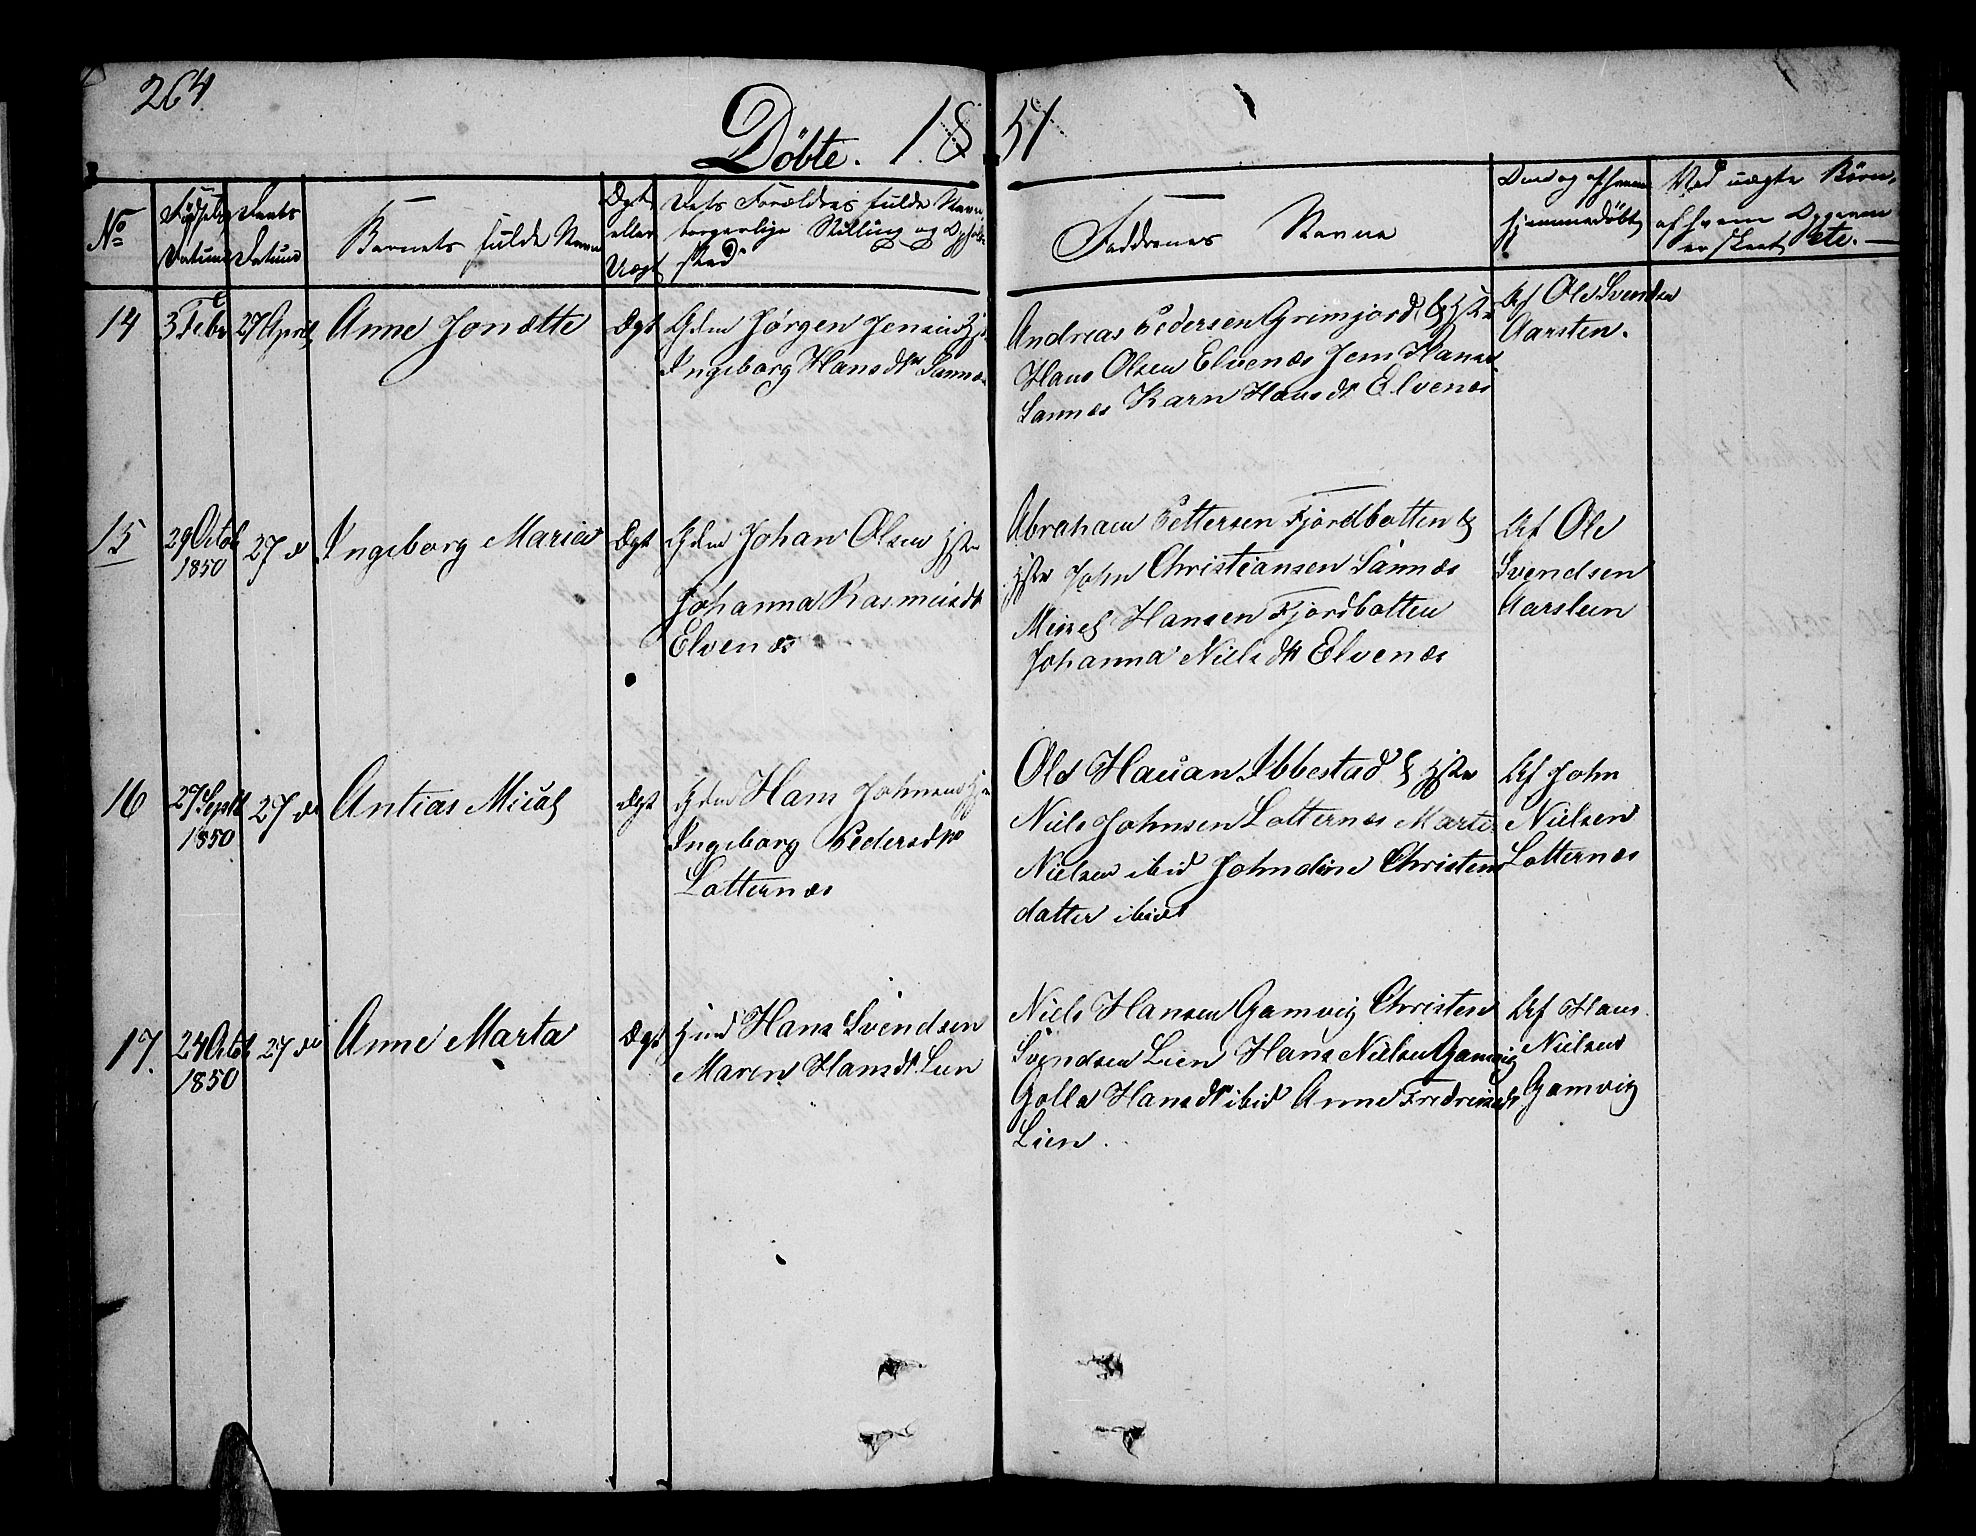 264
Döbte. 1851
No
Födsels Datum
Daabs Datum
Barnets fulde Navn
Ægte eller Uægte
Dets Forældres fulde Navn, borgerlige Stilling og Opholdssted
Faddernes Navne
hjemmedöbt
Ved uægte Börn, af hvem Opgaven er skeet etc.
14
3 Febr
27 April
Anne Jonætte
Ægt
Gdm Jörgen Jensen Hst
Ingeborg Hansdtr Sannæs
Andreas Pedersen Grimjord & Hstr
Hans Olsen Elvenæs Jens Hans
Sannæs Karn Hansdt Elvenæs
Af Ole Svendsen
Aarsten.
15
29 Octob
1850
27 de
Ingeborg Maria
Ægt
Gdm Johan Olsen Hstr
Johanna Rasmusdt
Elvenæs
Abraham Pettersen Fjordbotten &
Hstr John Christiansen Sannæs
Hansen Fjordbotten
Johanna Nielsdt Elvenæs
Af Ole
Svendsen
Aarsten
16
27 Septb
1850
27 de
Antias Micael
Ægt
Gdm Hans Johnsen Hst
Ingeborg Pedersdtr
Lotternæs
Ole Hauan Ibbestad & Hstr
Niels Johnsen Lotternæs Marte
Nielsen ibid Johndine Christens
datter ibid
Af John
Nielsen
Lotternæs
17.
24 Octob
1850
27 de
Anne Marta
Ægt
Hans Svendsen
Maren Hansdt Lien
Niels Hansen Gamvig Christen
Svendsen Lien Hans Nielsen Gamvig
Golla Hansdtr ibid Anne Fredriksdt
Lien.
Af Hans
Nielsen
Gamvig